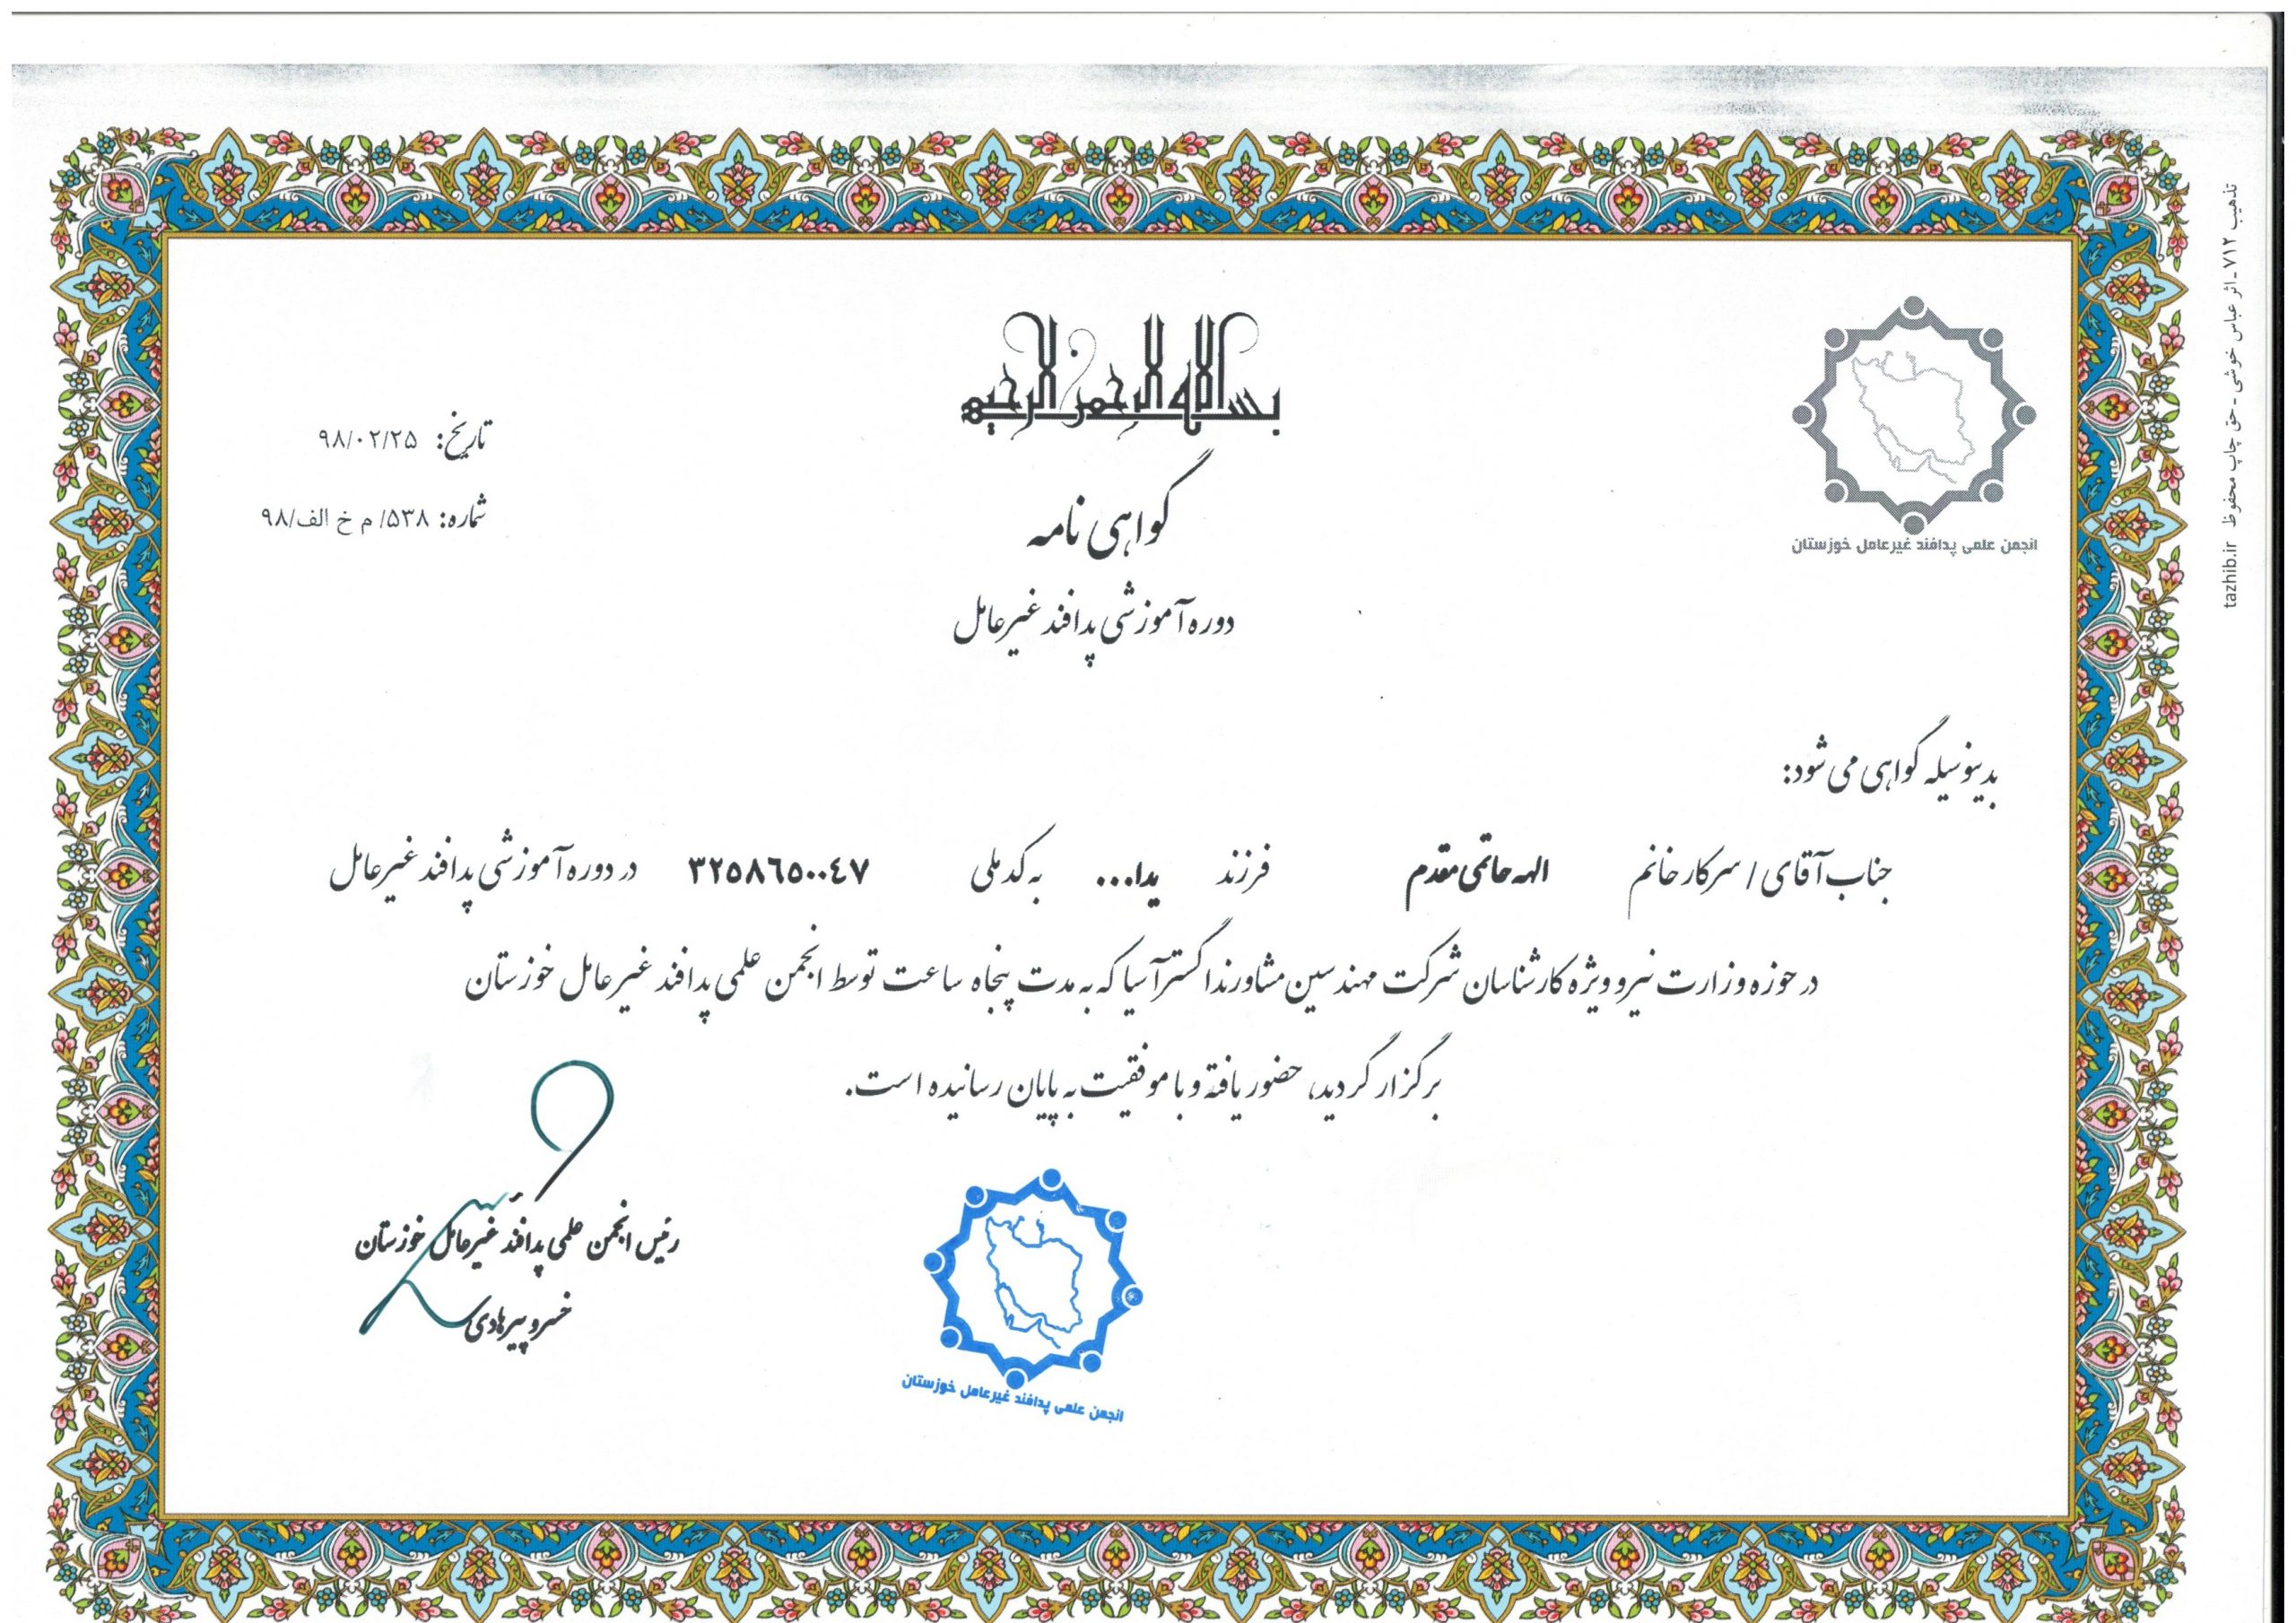 بسم الله الرحمن الرحیم
گواهی نامه
دوره آموزشی پدافند غیرعامل
تاریخ: ۹۸/۰۲/۲۵
شماره: ۵۳۸/ م خ الف/۹۸
انجمن علمی پدافند غیرعامل خوزستان
بدینوسیله گواهی می شود:
جناب آقای / سرکار خانم الهه حاتمی مقدم فرزند یدا... به کد ملی ۳۲۵۸۶۵۰۰۴۷ در دوره آموزشی پدافند غیرعامل
در حوزه وزارت نیرو ویژه کارشناسان شرکت مهندسین مشاور ندا گستر آسیا که به مدت پنجاه ساعت توسط انجمن علمی پدافند غیرعامل خوزستان
برگزار گردید، حضور یافته و با موفقیت به پایان رسانیده است.
رئیس انجمن علمی پدافند غیرعامل خوزستان
خسرو پیرهادی
انجمن علمی پدافند غیرعامل خوزستان
تذهیب ۷۱۲ - اثر عباس خوشی - حق چاپ محفوظ tazhib.ir